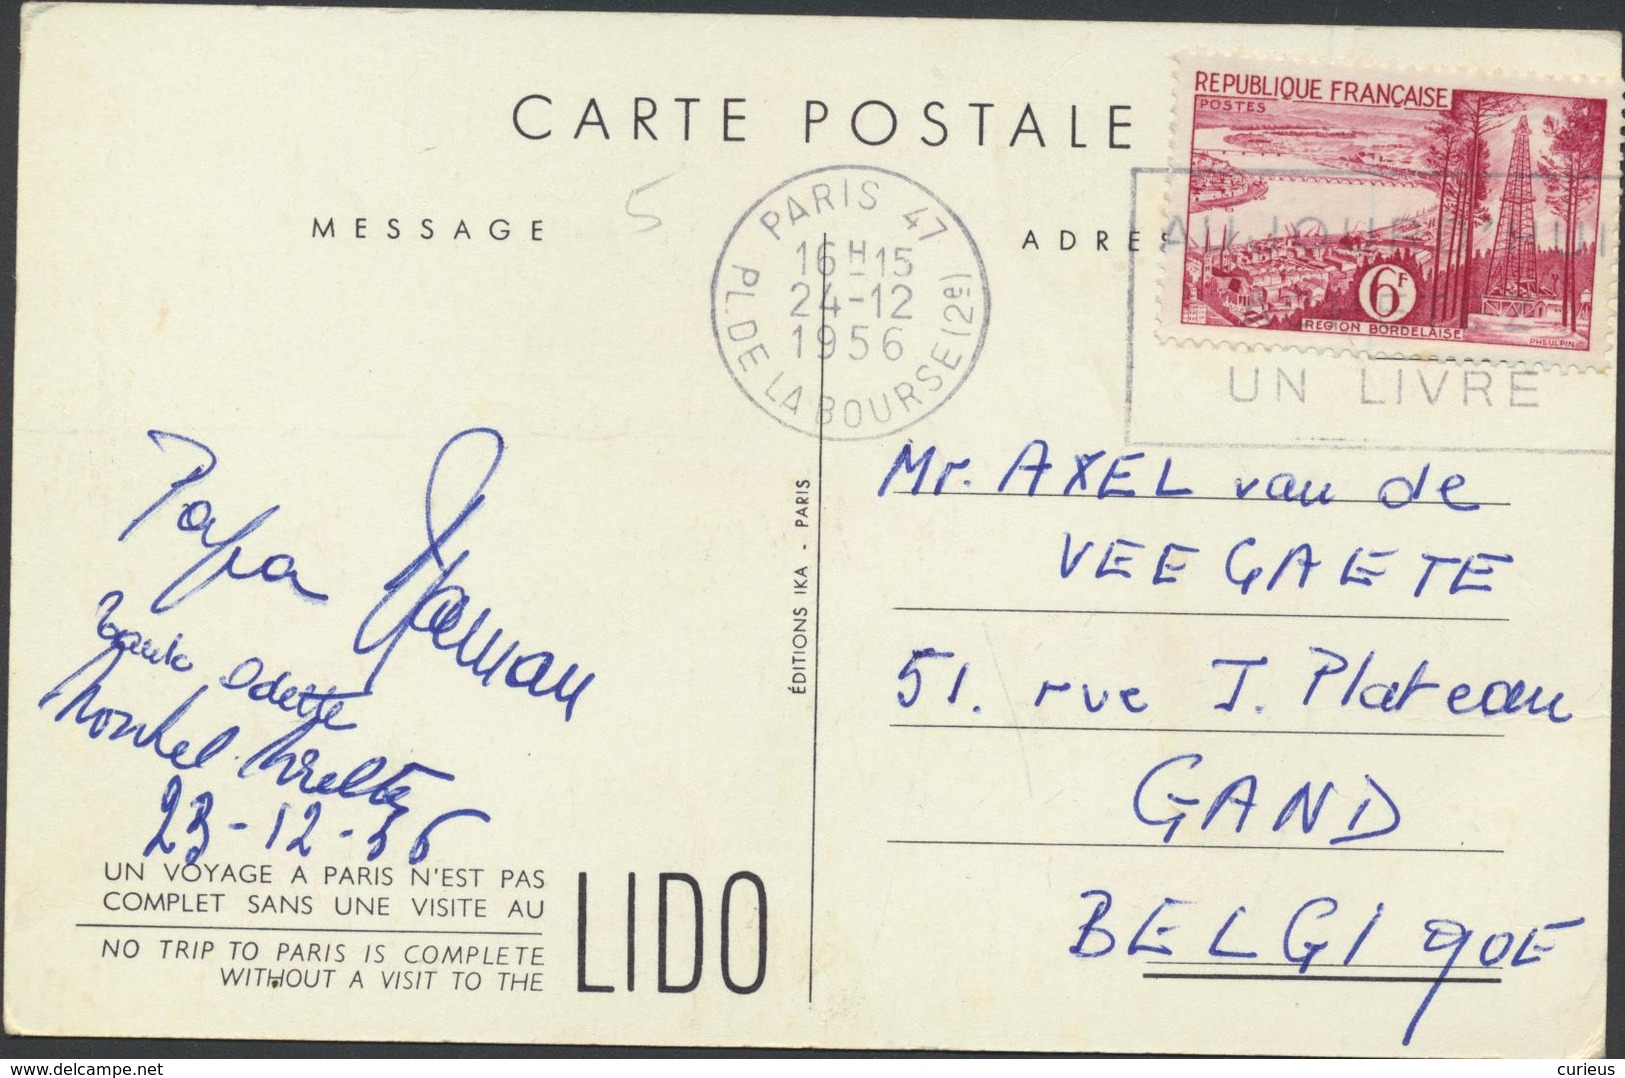 CARTE POSTALE
MESSAGE
5
ADRE
REPUBLIQUE FRANÇAISE
POSTES
6F
REGION BORDELAISE
PHEULPIN
PARIS 47
16H15
24-12
1956
PL. DE LA BOURSE (2e)
AUJOURD'HUI
UN LIVRE
Papa Maman
Tante Odette
Nonkel
23-12-56
UN VOYAGE A PARIS N'EST PAS
COMPLET SANS UNE VISITE AU
NO TRIP TO PARIS IS COMPLETE
WITHOUT A VISIT TO THE
LIDO
ÉDITIONS IKA - PARIS
Mr. AXEL van de
VEEGAETE
51. rue J. Plateau
GAND
BELGIQUE
delcampe.net
curieus